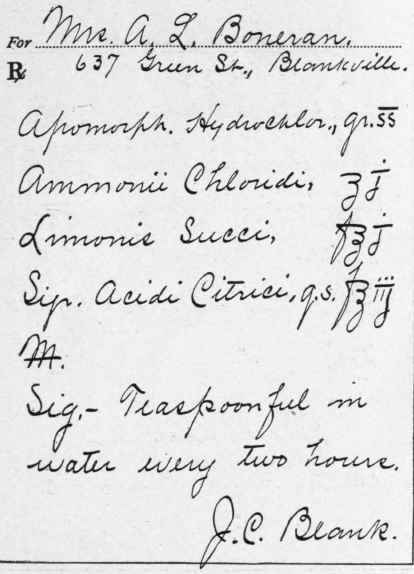 For Mrs. A. L. Boneran,
℞ 637 Green St., Blankville.
Apomorph. Hydrochlor., gr. ss
Ammonii Chloridi, ʒj
Limonis Succi, f℥j
Sir. Acidi Citrici, q.s. f℥iij
M.
Sig.- Teaspoonful in
water every two hours.
J. C. Blank.